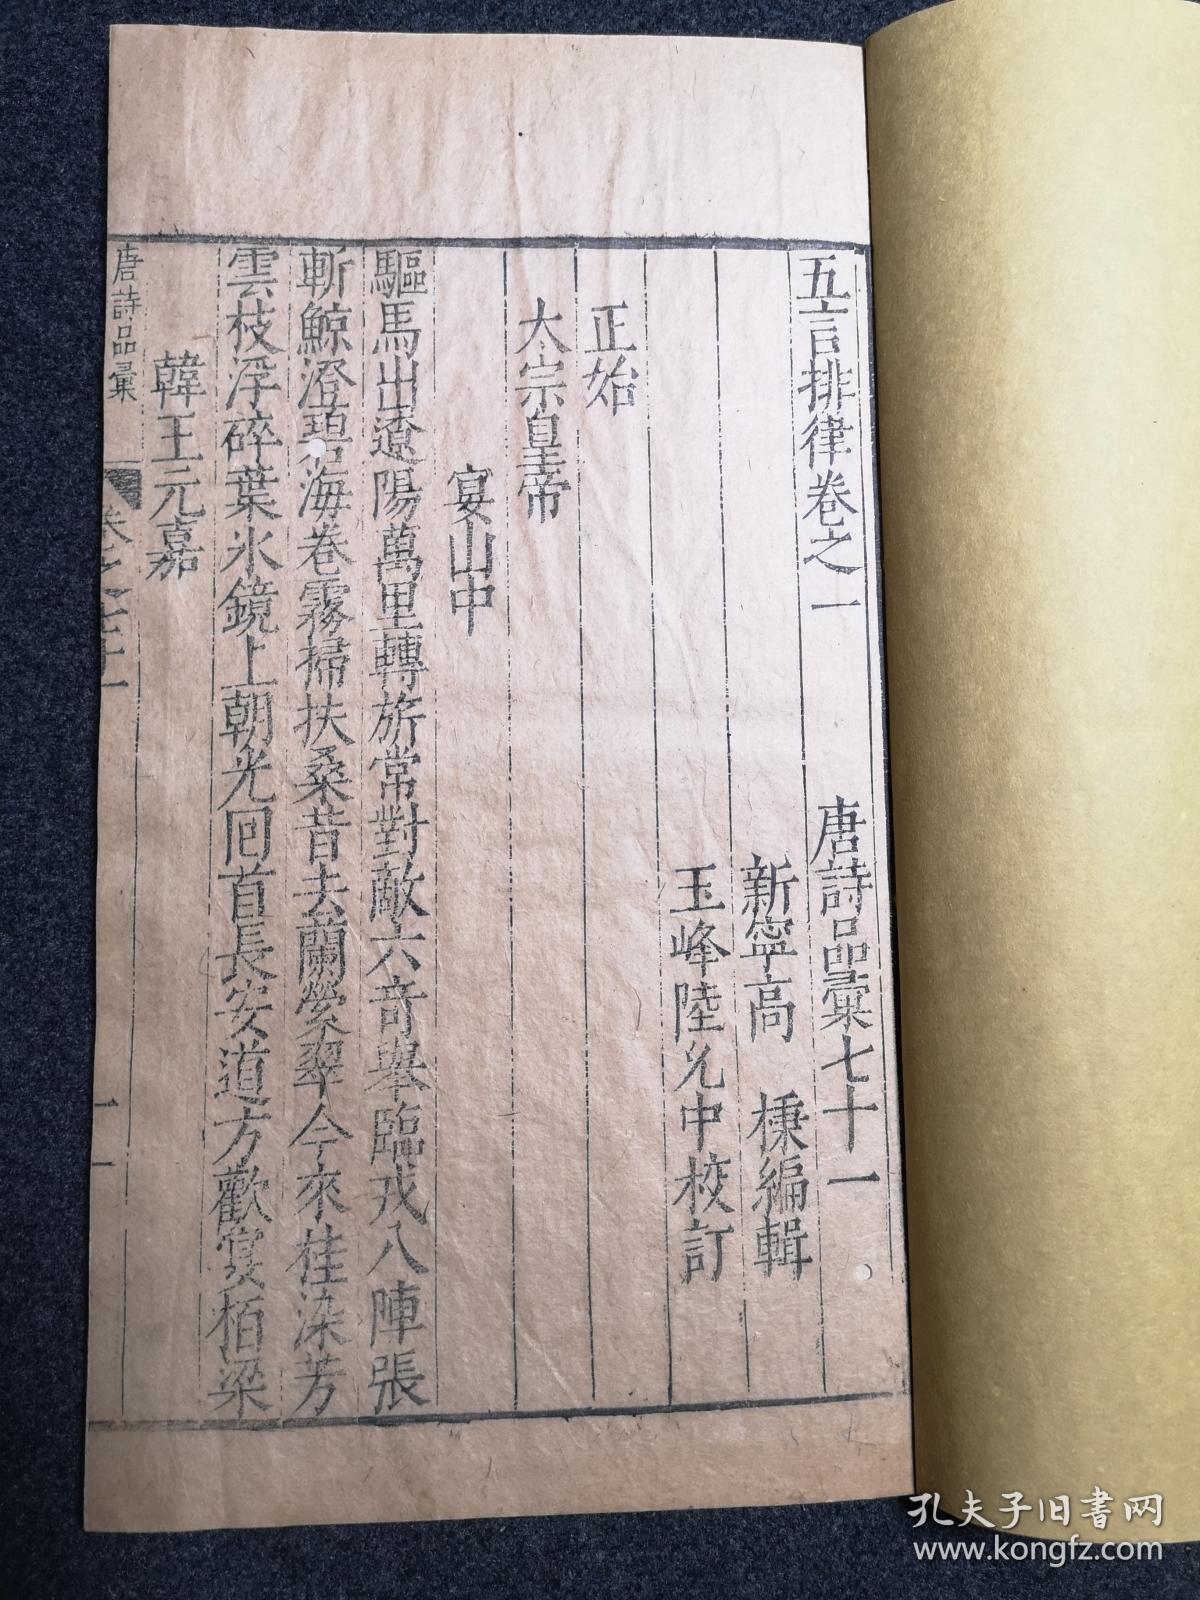 五言排律卷之一　唐詩品彙七十一
新寧高　棅編輯
玉峰陸允中校訂
正始
太宗皇帝
宴山中
驅馬出遼陽萬里轉旂常對敵六奇舉臨戎八陣張
斬鯨澄碧海卷霧掃扶桑昔去蘭縈翠今來桂染芳
雲枝浮碎葉氷鏡上朝光囘首長安道方歡宴栢梁
韓王元嘉
唐詩品彙　卷之七十一　一
孔夫子旧书网
www.kongfz.com